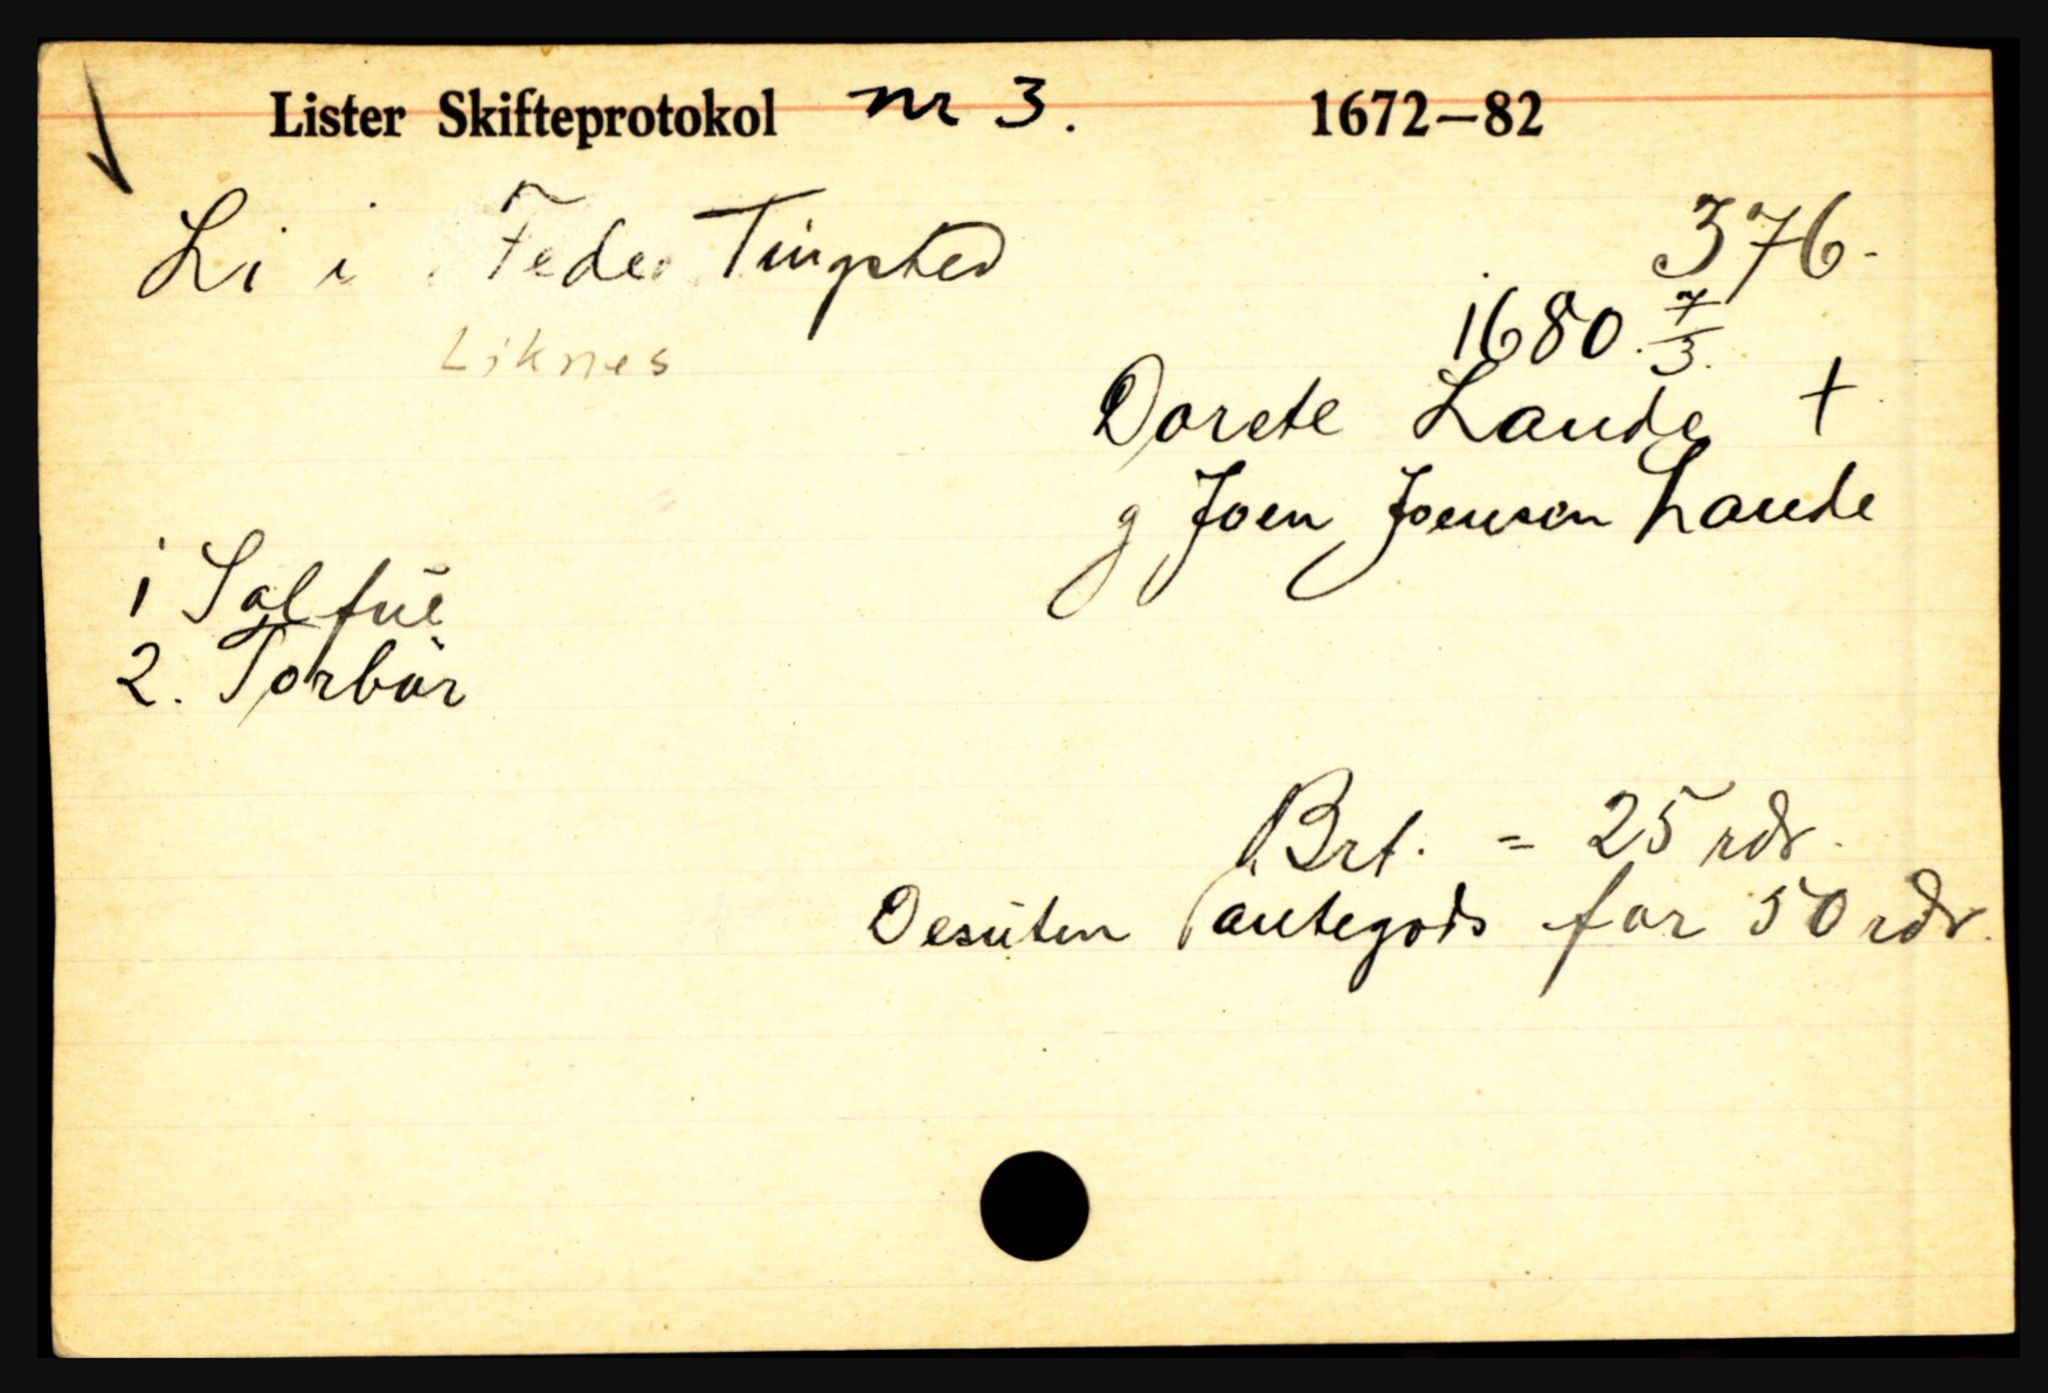 Lister Skifteprotokol nr 3. 1672–82
Li i Fede Tingsted
376.
Liknes
1680. 7/3.
Dorete Laude +
g Joen Joensen Laude
1 Salfue
2. Torbör
Brt. = 25 rdr.
Desuten pantegods for 50 rdr.